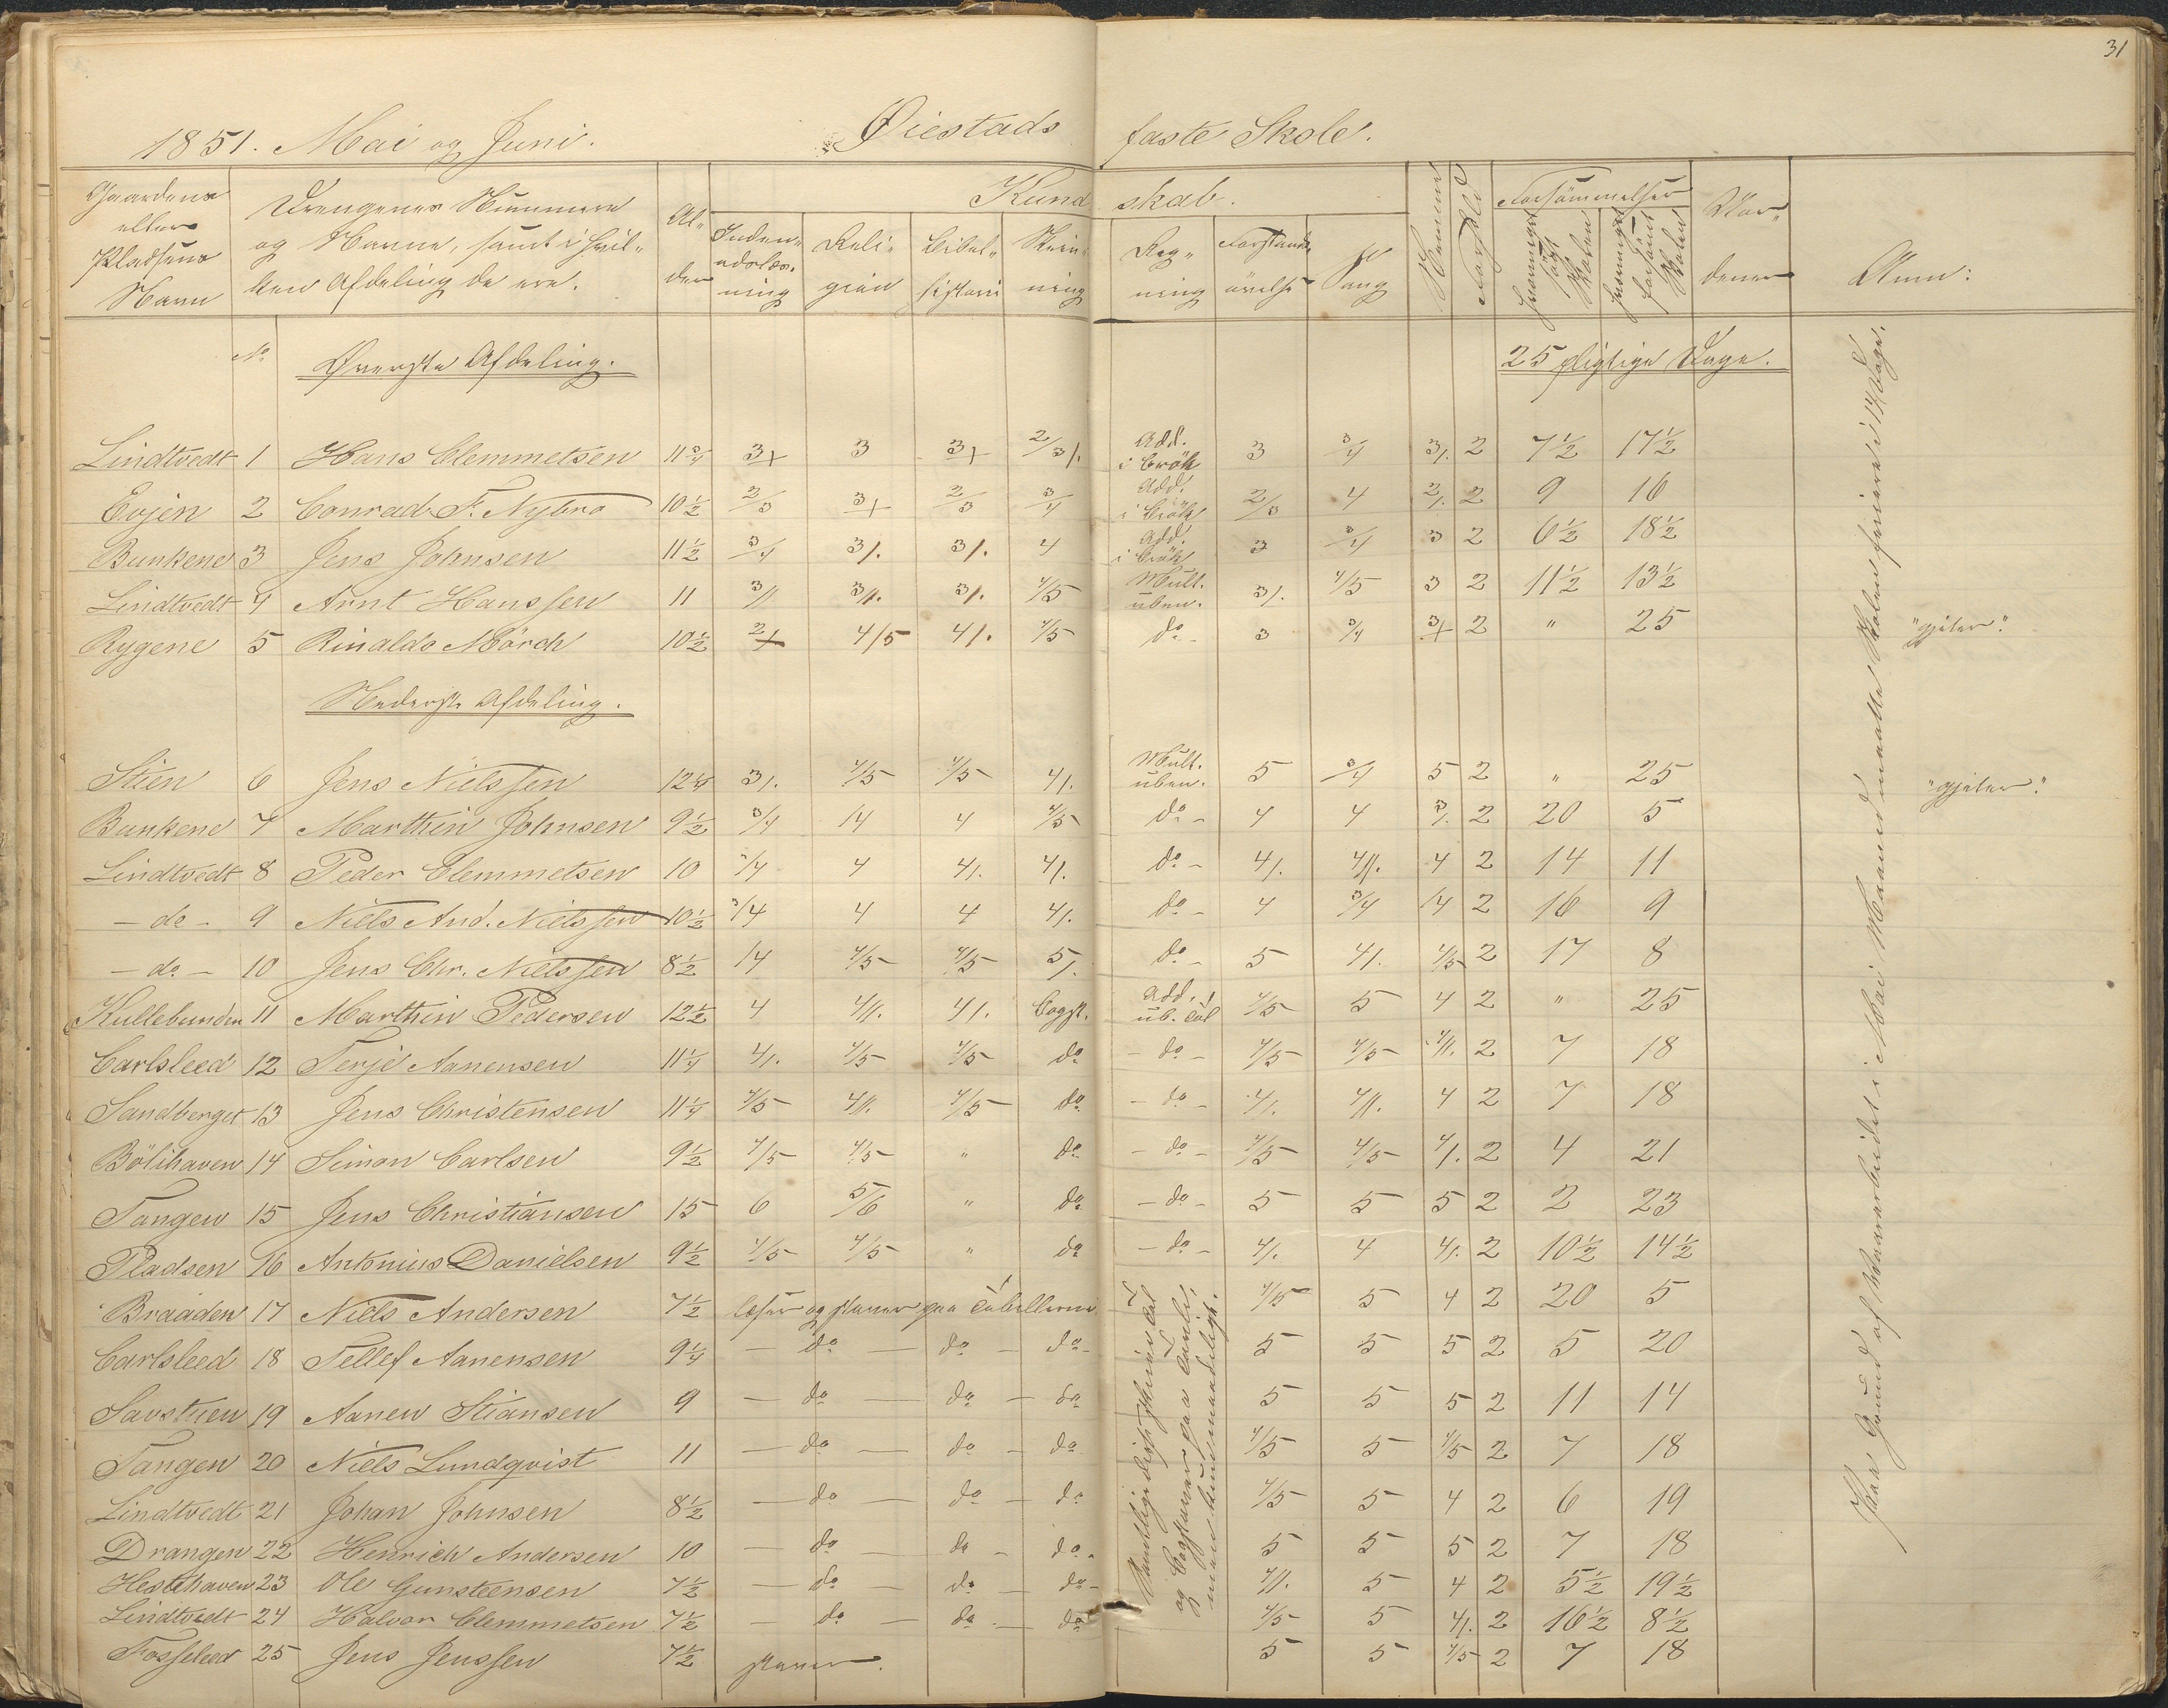 31
1851. Mai og Juni. Øiestads faste Skole.
Gaardens eller Pladsens Navn
Drengenes Nummere og Navne, samt i hvilken Afdeling de ere.
Alder
Kundskab.
Indenadslæsning
Religion
Bibelhistorie
Skrivning
Regning
Forstandsøvelse
Sang
Nemme
Forhold
Forsømmelser
Skolen
Skolen
Anm:
No Øverste Afdeling. 25 pligtige Dage.
Lindtvedt 1 Hans Clemmetsen 11 3/4 3+ 3 3+ 2/3/. Add. i Brök 3 3/4 3/. 2 7 1/2 17 1/2
Evjen 2 Conrad F. Nybro 10 1/2 2/3 3+ 2/3 3/4 Add. i Brök 2/3 4 2/. 2 9 16
Bunkene 3 Jens Johnsen 11 1/2 3/4 3/. 3/. 4 Add. i Brök 3 3/4 3 2 6 1/2 18 1/2
Lindtvedt 4 Arnt Hanssen 11 3// 3//. 3/. 4/5 Mult. uben. 3/. 4/5 3 2 11 1/2 13 1/2
Rygene 5 Rinaldo Mörch 10 1/2 2+ 4/5 4/. 4/5 do - 3 3/4 3+ 2 " 25 "gjeter".
Nederste Afdeling.
Stien 6 Jens Nielssen 12 1/4 3/. 4/5 4/5 4/. Mult. uben. 5 3/4 5 2 " 25 "gjeter".
Bunkene 7 Marthin Johnsen 9 1/2 3/4 /4 4 4/5 do - 4 4 3/. 2 20 5
Lindtvedt 8 Peder Clemmetsen 10 3/4 4 4/. 4/. do - 4/. 4//. 4 2 14 11
- do - 9 Niels And. Nielssen 10 1/2 3/4 4 4 4/. do - 4 3/4 /4 2 16 9
- do - 10 Jens Chr. Nielssen 8 1/2 /4 4/5 4/5 5/. do - 5 4/. 4/5 2 17 8
Kullebunden 11 Marthin Pedersen 12 1/2 4 4//. 4/. Bogst. Add. ub. Tal 4/5 5 4 2 " 25
Carlsleed 12 Terje Aanensen 11 1/4 4/. 4/5 4/5 do - do - 4/5 4/5 4//. 2 7 18
Sandberget 13 Jens Christensen 11 1/4 4/5 4//. 4/5 do - do - 4/. 4//. 4 2 7 18
Bölihaven 14 Simon Carlsen 9 1/2 4/5 4/5 " do - do - 4/5 4/5 4/. 2 4 21
Tangen 15 Jens Christiansen 15 6 5/6 " do - do - 5 5 5 2 2 23
Pladsen 16 Antonius Danielsen 9 1/2 4/5 4/5 " do - do - 4/. 4 4/. 2 10 1/2 14 1/2
Braaden 17 Niels Andersen 7 1/2 læser og staver paa Tabellerne 4/5 5 4 2 20 5
Carlsleed 18 Tellef Aanensen 9 1/4 - do - do - do - 5 5 5 2 5 20
Savstuen 19 Aanen Stiansen 9 - do - do - do 5 5 5 2 11 14
Tangen 20 Niels Lundqvist 11 - do - do - do 4/5 5 4/5 2 7 18
Lindtvedt 21 Johan Johnsen 8 1/2 - do - do - do 4/5 5 4 2 6 19
Drangen 22 Henrich Andersen 10 - do - do - do - 5 5 5 2 7 18
Hestehaven 23 Ole Gunsteensen 7 1/2 - do - do - do - 4//. 5 4 2 5 1/2 19 1/2
Lindtvedt 24 Halvor Clemmetsen 7 1/2 - do - do - do 4/5 5 4/. 2 16 1/2 8 1/2
Fosseleed 25 Jens Jenssen 7 1/2 staver. 5 5 4/5 2 7 18
Samtlige disse skrive Tal
og Bogstaver paa Tavle,
Paa Grund af Vaararbeidet i Mai Maaned maatte Skolen feriere i 17 Dage.